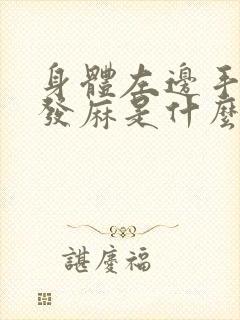 身體左邊手
發麻是什麼
諶慶福